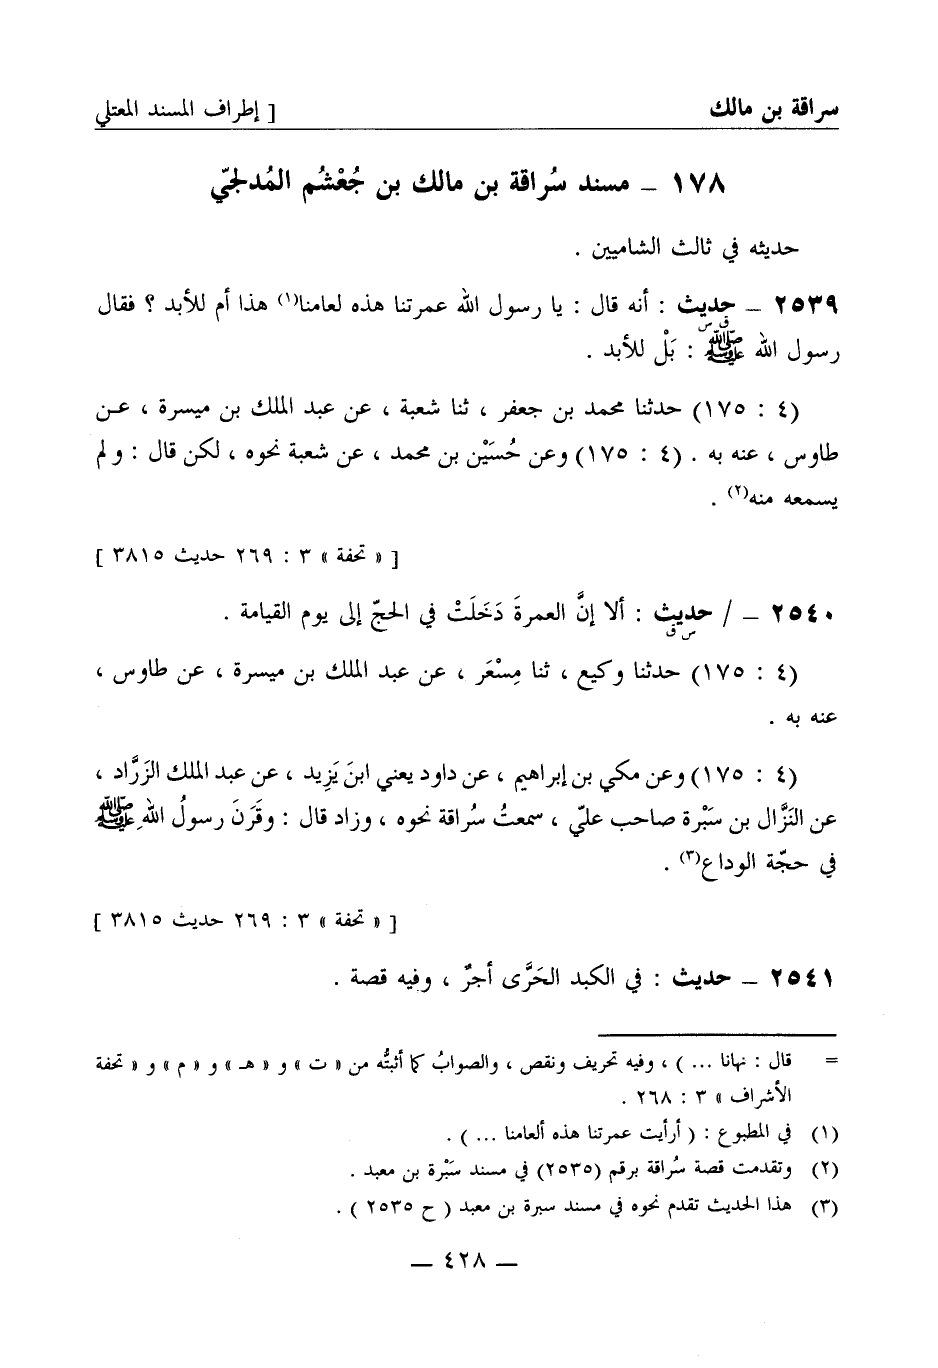 سراقة بن مالك [ إطراف المسند المعتلي
١٧٨ ــ مسند سُراقة بن مالك بن جُعْشُم المُدلجيّ
حديثه في ثالث الشاميين .
٢٥٣٩ ــ حديث : أنه قال : يا رسول الله عمرتنا هذه لعامنا(١) هذا أم للأبد ؟ فقال
ق س
رسول الله ﷺ : بَلْ للأبد .
(٤ : ١٧٥) حدثنا محمد بن جعفر ، ثنا شعبة ، عن عبد الملك بن ميسرة ، عـن
طاوس ، عنه به . (٤ : ١٧٥) وعن حُسَيْن بن محمد ، عن شعبة نحوه ، لكن قال : و لم
يسمعه منه(٢) .
[ « تحفة » ٣ : ٢٦٩ حديث ٣٨١٥ ]
٢٥٤٠ ــ / حديث : ألا إنَّ العمرةَ دَخَلَتْ في الحجّ إلى يوم القيامة .
س ق
(٤ : ١٧٥) حدثنا وكيع ، ثنا مِسْعَر ، عن عبد الملك بن ميسرة ، عن طاوس ،
عنه به .
(٤ : ١٧٥) وعن مكي بن إبراهيم ، عن داود يعني ابنَ يَزِيد ، عن عبد الملك الزَّراد ،
عن النَزَّال بن سَبْرة صاحب عليّ ، سمعتُ سُراقة نحوه ، وزاد قال : وقَرَنَ رسولُ اللهِ ﷺ
في حجّة الوداع(٣) .
[ « تحفة » ٣ : ٢٦٩ حديث ٣٨١٥ ]
٢٥٤١ ــ حديث : في الكبد الحَرَّى أجرٌ ، وفيه قصة .
= قال : نهانا ... ) ، وفيه تحريف ونقص ، والصوابُ كما أثبتُّه من « ت » و « هـ » و « م » و « تحفة
الأشراف » ٣ : ٢٦٨ .
(١) في المطبوع : ( أرأيت عمرتنا هذه ألعامنا ... ) .
(٢) وتقدمت قصة سُراقة برقم (٢٥٣٥) في مسند سَبْرة بن معبد .
(٣) هذا الحديث تقدم نحوه في مسند سبرة بن معبد ( ح ٢٥٣٥ ) .
ــ ٤٢٨ ــ